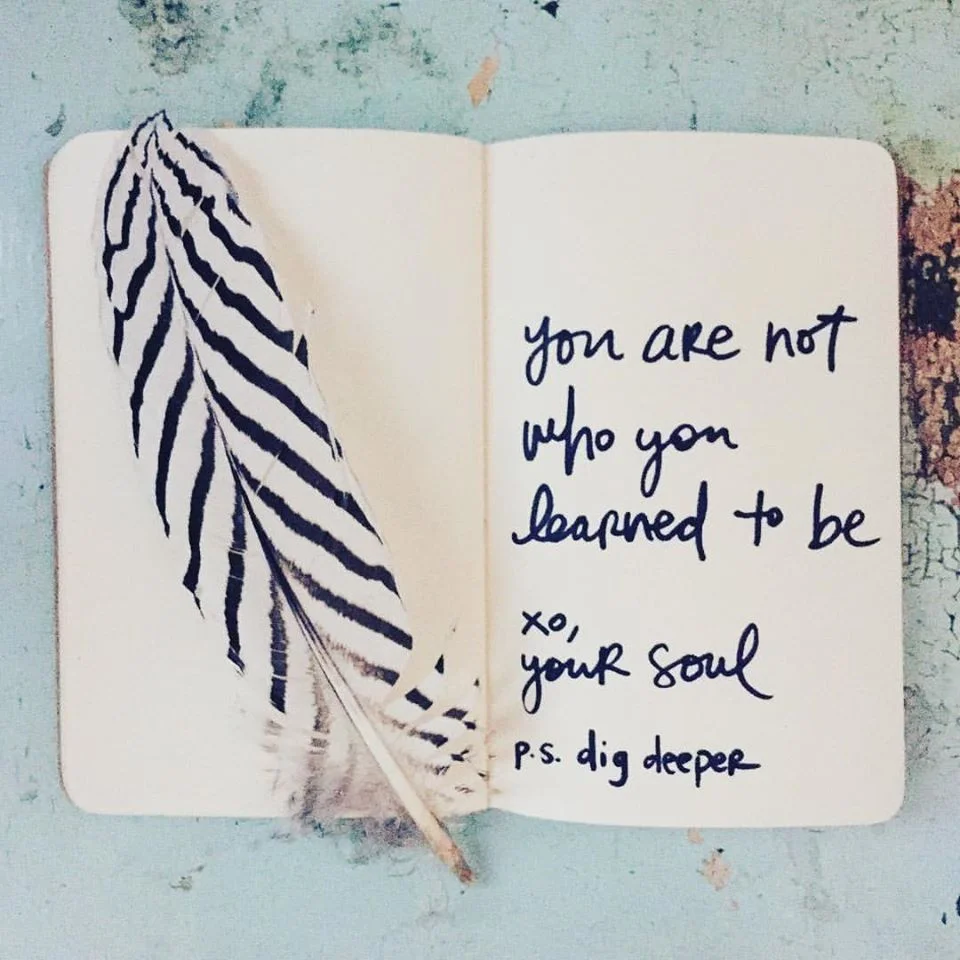 you are not
who you
learned to be
xo,
your soul
p.s. dig deeper